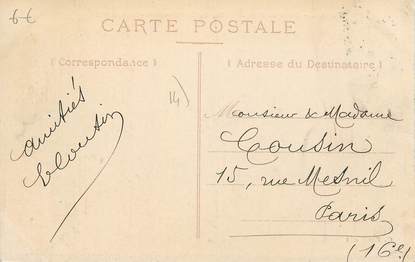 6€
CARTE POSTALE
Correspondance
Adresse du Destinataire
14)
amitiés
Monsieur & Madame
Cousin
15, rue Mesnil
Paris
(16e)